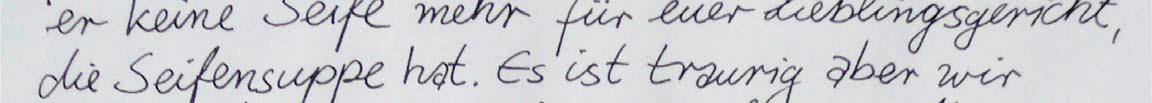 er keine Seife mehr für euer Lieblingsgericht,
die Seifensuppe hat. Es ist traurig aber wir